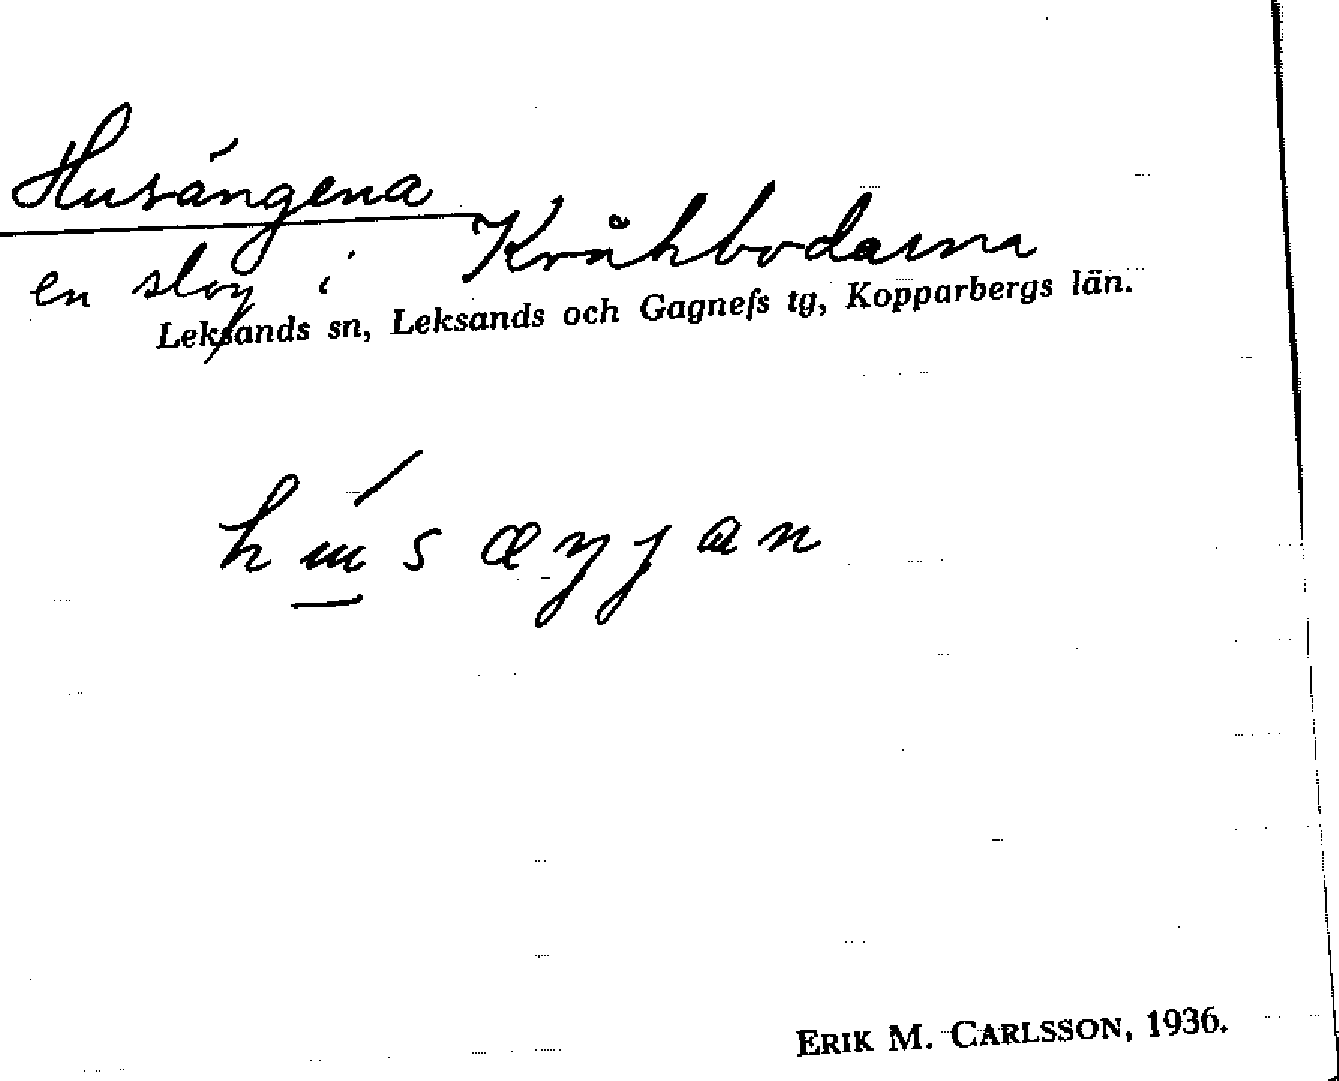 Husängena
en slog i Kråkbodarna
Leksands sn, Leksands och Gagnefs tg, Kopparbergs län.
ERIK M. CARLSSON, 1936.